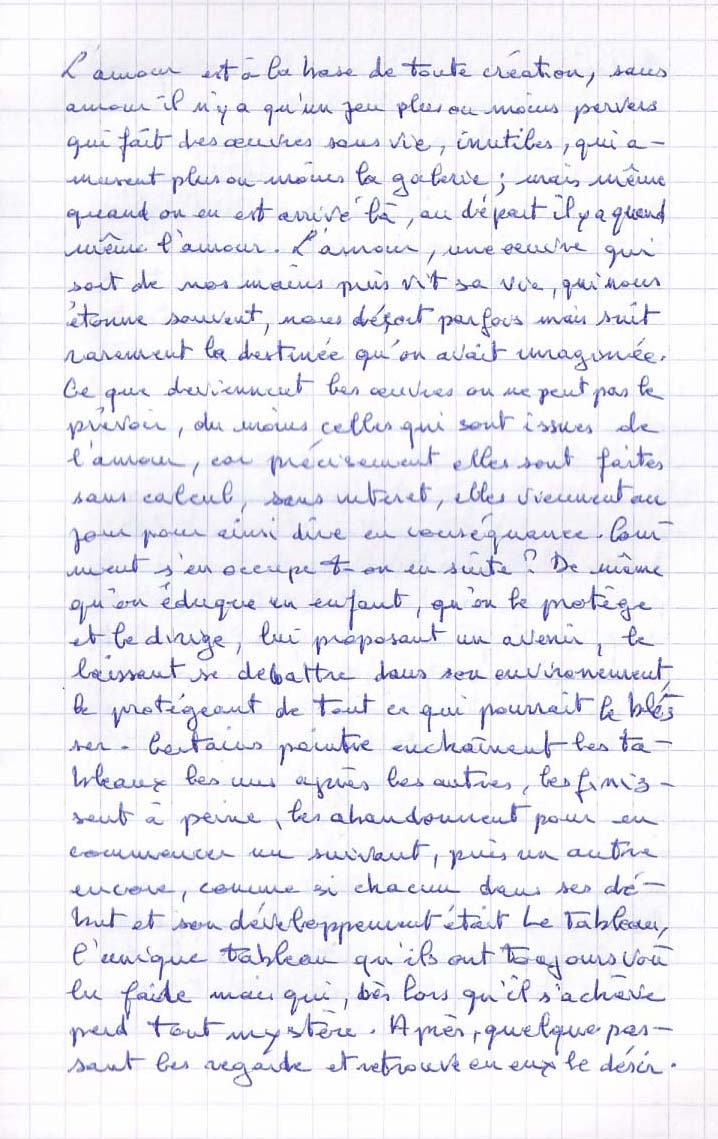 L'amour est à la base de toute création, sans
amour il n'y a qu'un jeu plus ou moins pervers
qui fait des œuvres sans vie, inutiles, qui a-
musent plus ou moins la galerie ; mais même
quand on en est arrivé là, au départ il y a quand
même l'amour. L'amour, une œuvre qui
sort de nos mains puis vit sa vie, qui nous
étonne souvent, nous déçoit parfois mais suit
rarement la destinée qu'on avait imaginée.
Ce que deviennent les œuvres on ne peut pas le
prévoir, du moins celles qui sont issues de
l'amour, car précisément elles sont faites
sans calcul, sans interet, elles viennent au
jour pour ainsi dire en conséquance. Com-
ment s'en occupe t-on en suite ? De même
qu'on éduque un enfant, qu'on le protège
et le dirige, lui proposant un avenir, le
laissant se debattre dans son environement,
le protégeant de tout ce qui pourrait le bles
ser. Certains peintre enchaînent les ta-
bleaux les uns après les autres, les finis-
sent à peine, les abandonnent pour en
commencer un suivant, puis un autre
encore, comme si chacun dans ses dé-
but et son développement était Le Tableau,
l'unique tableau qu'ils ont toujours vou
lu faide mais qui, dès lors qu'il s'achève
perd tout mystère. Après, quelque pas-
sant les regarde et retrouve en eux le désir.